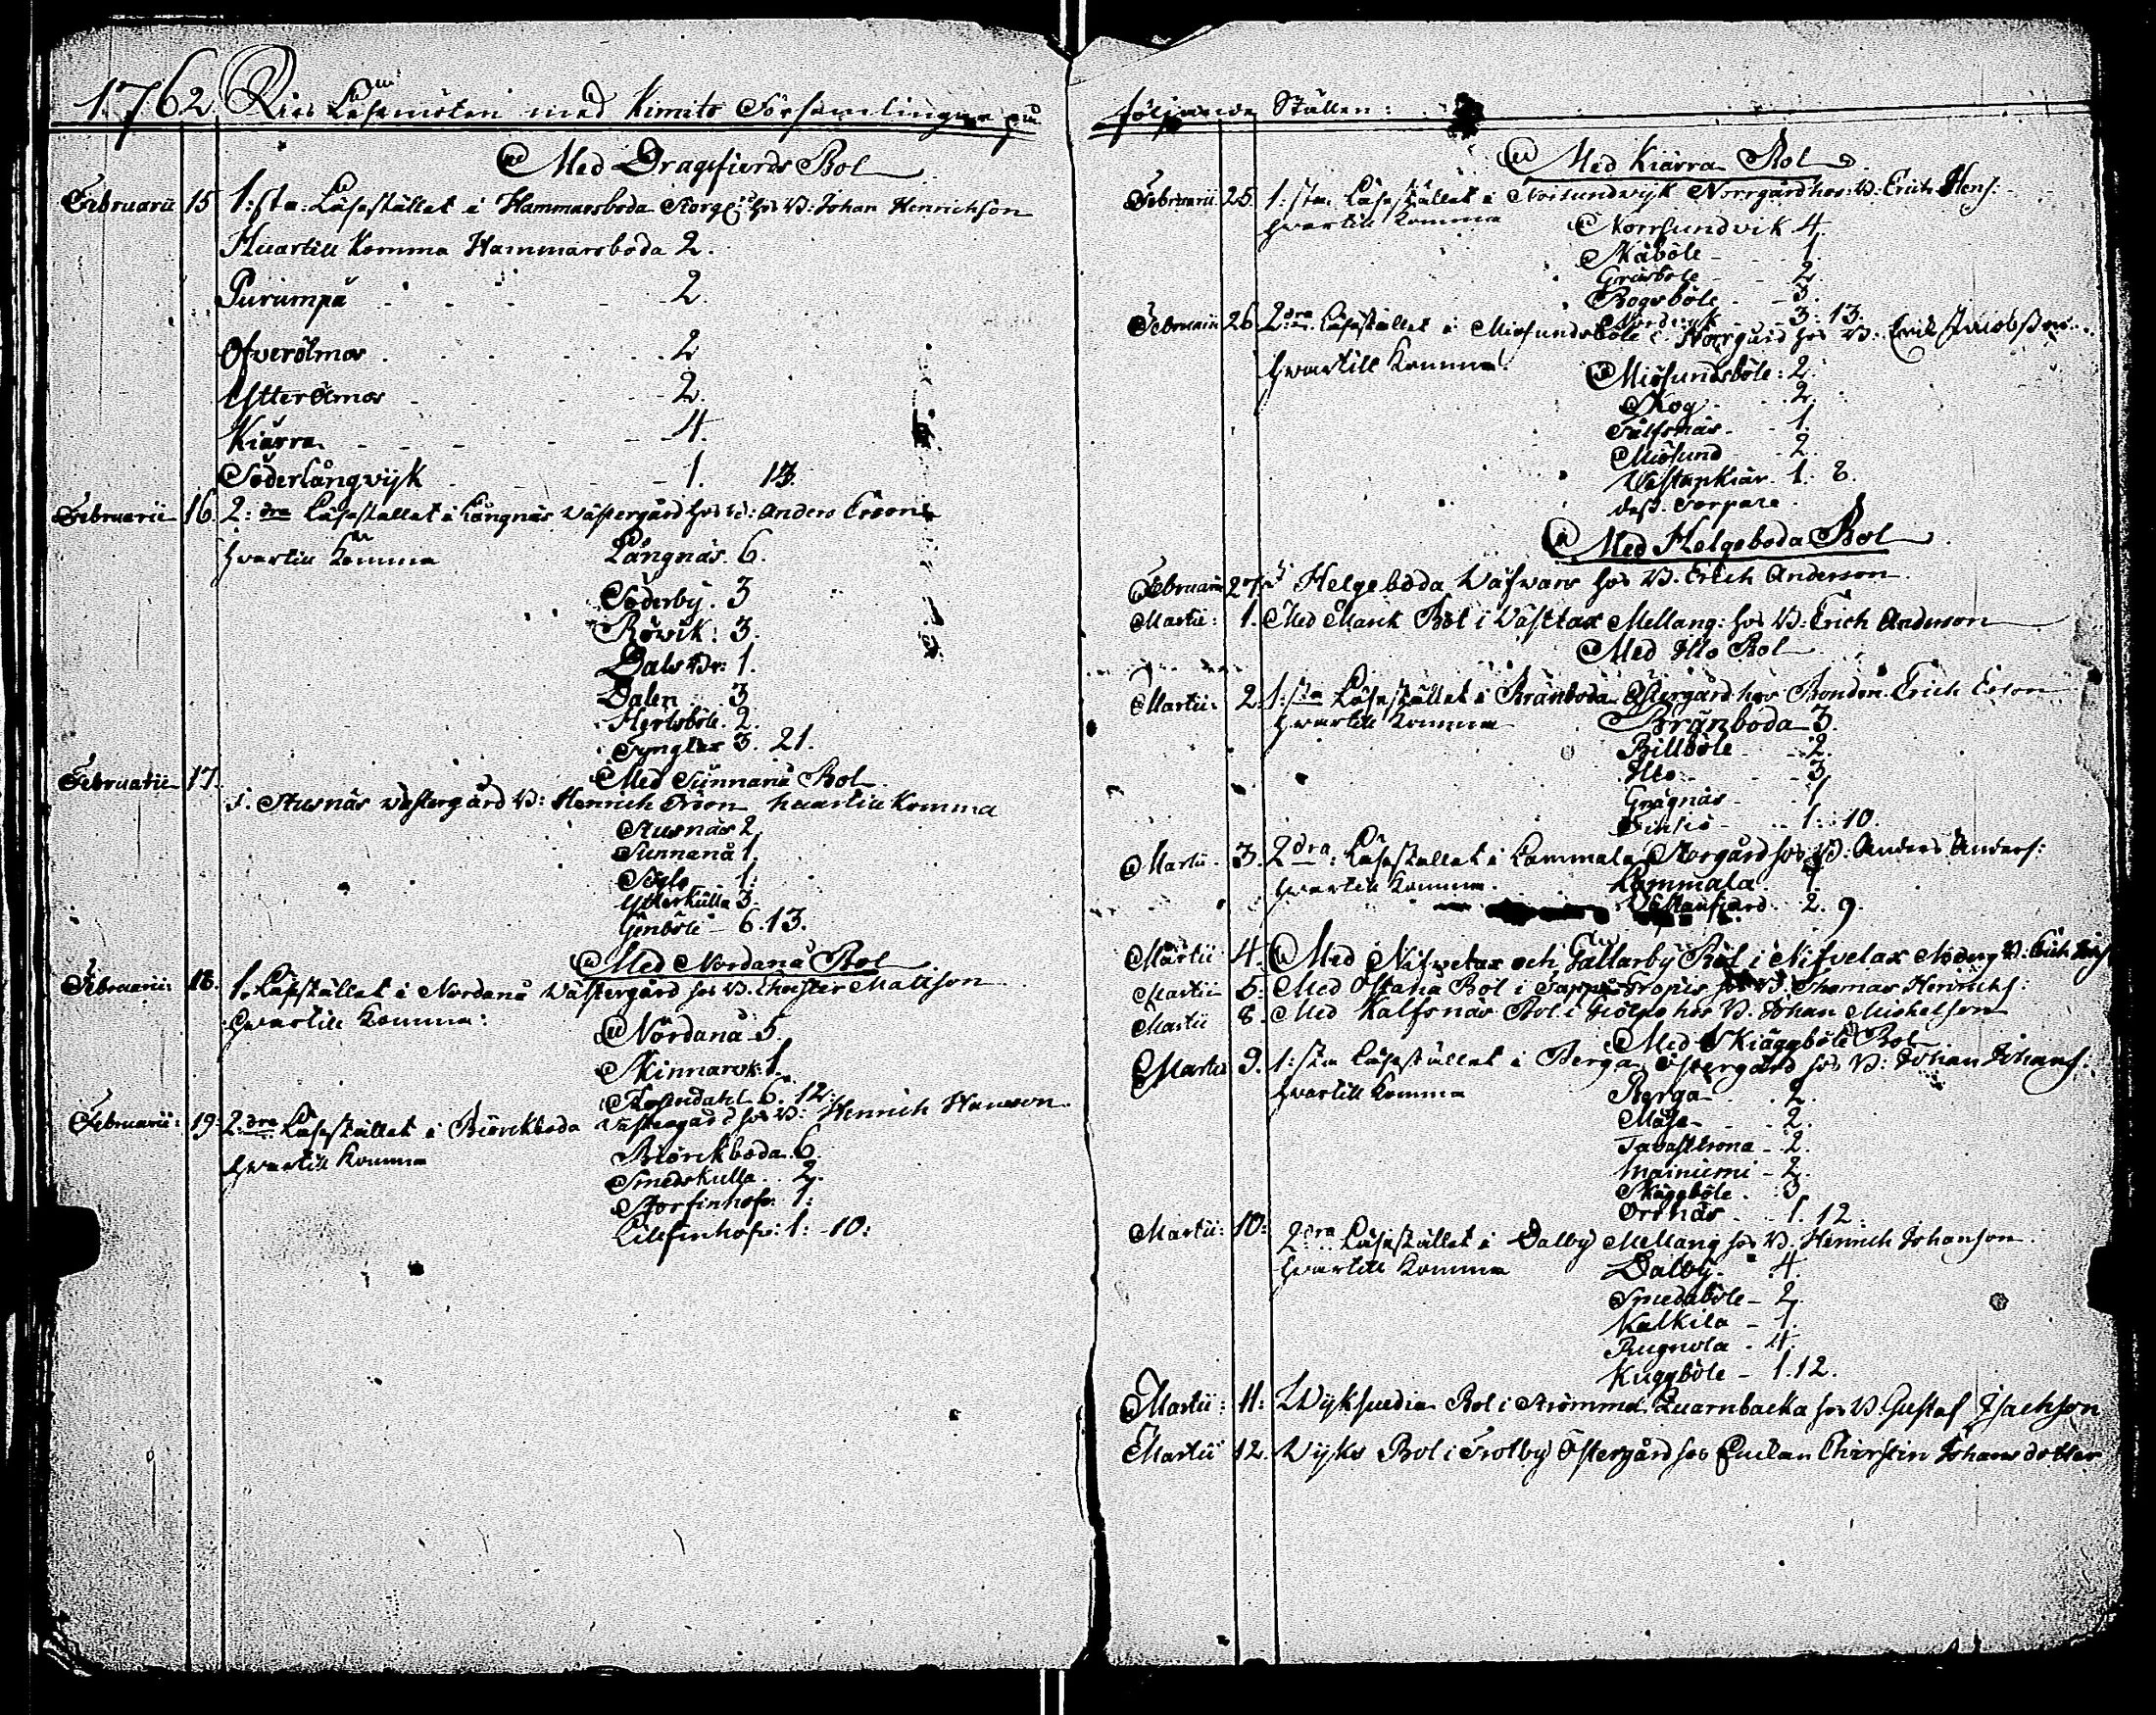 1762 Läsemöten med Kimito Församlingar på
Med Dragsfierds Bol
Februarii 15 1:sta Läseställat i Hammarsboda Storg: hos B: Johan Henrichson
Huartill Komma Hammarsboda 2.
Purumpä 2.
Öfverölmos 2
Ytterölmos 2.
Kiärra 4.
Söderlångvijk 1. 13.
Februarii 16. 2:dra Läseställat i Långnäs Västergård hos B: Anders Erson
hvartill Komma Långnäs. 6.
Söderby. 3
Rövik: 3.
Dals Br: 1.
Dalen 3
Hertsböle. 2.
Tynglax 3. 21.
Med Sunnanå Bol
Februarii 17. i Stusnäs västergård B: Henrich Erson huartill Komma
Stusnäs 2.
Sunnanå 1.
Söglo 1:
Ytterkulla 3.
Genböle 6. 13.
Med Nordanå Bol
Februarii 18. 1. Läseställat i Nordanå Västergård hos B. Christer Mattson
hvartill Komma:
Nordanå 5.
Skinnarvk: 1.
Rosendahl 6. 12.
Februarii: 19: 2:dra Läseställat i Biörckboda Västergård hos B: Henrich Hansson
hvartill Komma Biörckboda 6.
Smedskulla 2.
Storfinhofs: 1:
Lillfinhofs: 1: 10:
följande Ställen:
Med Kiärra Bol
Februarii 25 1:sta Läseställat i Norrsundvijk Norrgård hos: B: Erich Hens:
hvartill Komma Norrsundvik 4.
Näböle 1.
Gräsböle 2.
Rogsböle 3.
Nordanvik 3: 13.
Februarii 26. 2:dra Läseställat i Miösundsböle Norrgård hos B: Erik Jacobson
hvartill Komma: Miösundsböle: 2.
Skog 2.
Fälfsnäs 1.
Miösund 2.
Västankiär. 1: 8.
dess Torpare
Med Helgeboda Bol
Februarii 27. i Helgeboda Väfvars hos B. Erich Anderson
Martii: 1. Med Mark Bol i Västlax Mellang: hos B: Erich Anderson
Med Illo Bol
Martii: 2. 1:sta Läseställat i Bränboda Östergård hos Bonden Erich Erson
hvartill Komma Bränboda 3.
Billböle 2.
Illo 3.
Grägnäs 1
Finsiö 1: 10.
Martii 3. 2dra: Läseställat i Lammala Storgård hos B: Anders Anders:
hvartill Komma. Lammala 7.
Västanfiärd 2. 9.
Martii 4. Med Nifvelax och Gallarby Bol i Nifvelax Söderg B: Erich
Martii 5: Med Östanå Bol i Fröjes hos B. Thomas Henrichs:
Martii 8. Med Kalfsnäs Bol i hos B. Johan Michelson
Med Skiäggböle Bol
Martii 9. 1:sta Läseställat i Berga Östergård hos B: Johan Johans:
hvartill Komma Berga 2.
Måsa 2.
Tavastkona 2.
Mainiemi 2.
Skäggböle. 3
Orrnäs 1. 12.
Martii: 10: 2:dra Läseställat i Dalby Mellang hos B. Henrich Johanson.
hvartill Komma Dalby. 4.
Smedaböle 2.
Kalkila 1.
Rugnola 4.
Kuggböle 1. 12.
Martii: 11: Wijksuedia Bol i Strömma Quarnbacka hos B. Gustaf Isachson
Martii 12. Wijks Bol i Trotby Östergård hos Enckan Christin Johansdotter